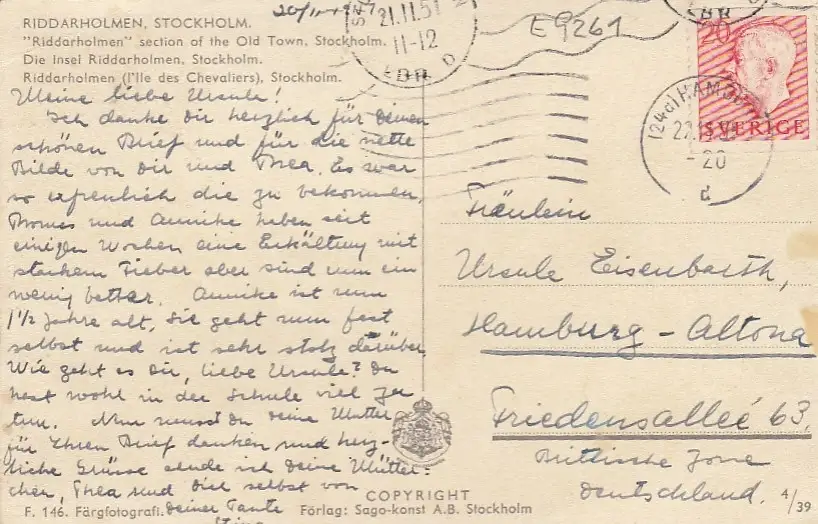 20/11-1951
RIDDARHOLMEN, STOCKHOLM.
"Riddarholmen" section of the Old Town, Stockholm.
Die Insel Riddarholmen, Stockholm.
Riddarholmen (l'Ile des Chevaliers), Stockholm.
Meine liebe Ursula!
Ich danke Dir herzlich für Deinen
schönen Brief und für die nette
Bilde von Dir und Thea. Es war
so erfreulich die zu bekommen.
Thomas und Annike haben seit
einigen Wochen eine Erkältung mit
starkem Fieber aber sind nun ein
wenig better. Annike ist nun
1 1/2 Jahre alt, sie geht nun fast
selbst und ist sehr stolz darüber.
Wie geht es Dir, liebe Ursula? Du
hast wohl in der Schule viel zu
tun. Nun musst Du Deine Mutter
für Ihren Brief danken und herz-
liche Grüsse sende ich Deine Mütter-
chen, Thea und Dich selbst von
Deiner Tante
F. 146. Färgfotografi.
COPYRIGHT
Förlag: Sago-konst A.B. Stockholm
4/39
21.11.51
11-12
LBR D
E 9261
LBR
20
SVERIGE
(24a) HAMBURG
22
-20
d
Fräulein
Ursula Eisenbarth,
Hamburg-Altona
Friedensalleé 63,
Brittische Zone
Deutschland.